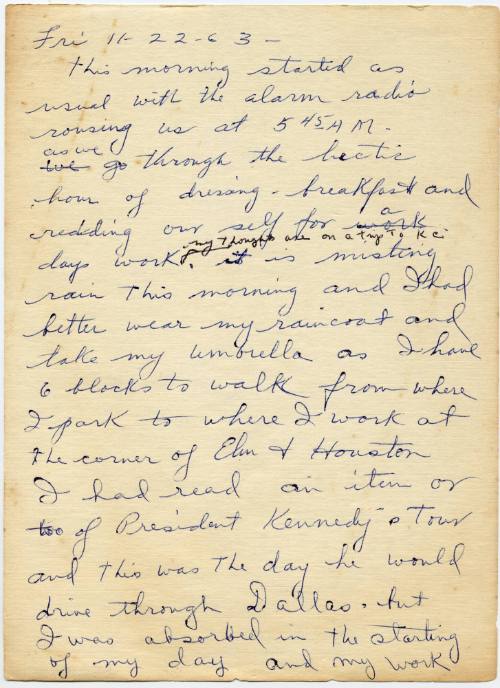 Fri 11-22-63-
This morning started as
usual with the alarm radio
rousing us at 5 45 AM.
as we
we go through the hectic
hour of dressing - breakfast and
redding our self for work a
my thoughts are on a trip to K C.
days work. it is misting
rain this morning and I had
better wear my raincoat and
take my umbrella as I have
6 blocks to walk from where
I park to where I work at
the corner of Elm & Houston
I had read an item or
two of President Kennedy's Tour
and this was the day he would
drive through Dallas. but
I was absorbed in the starting
of my day and my work